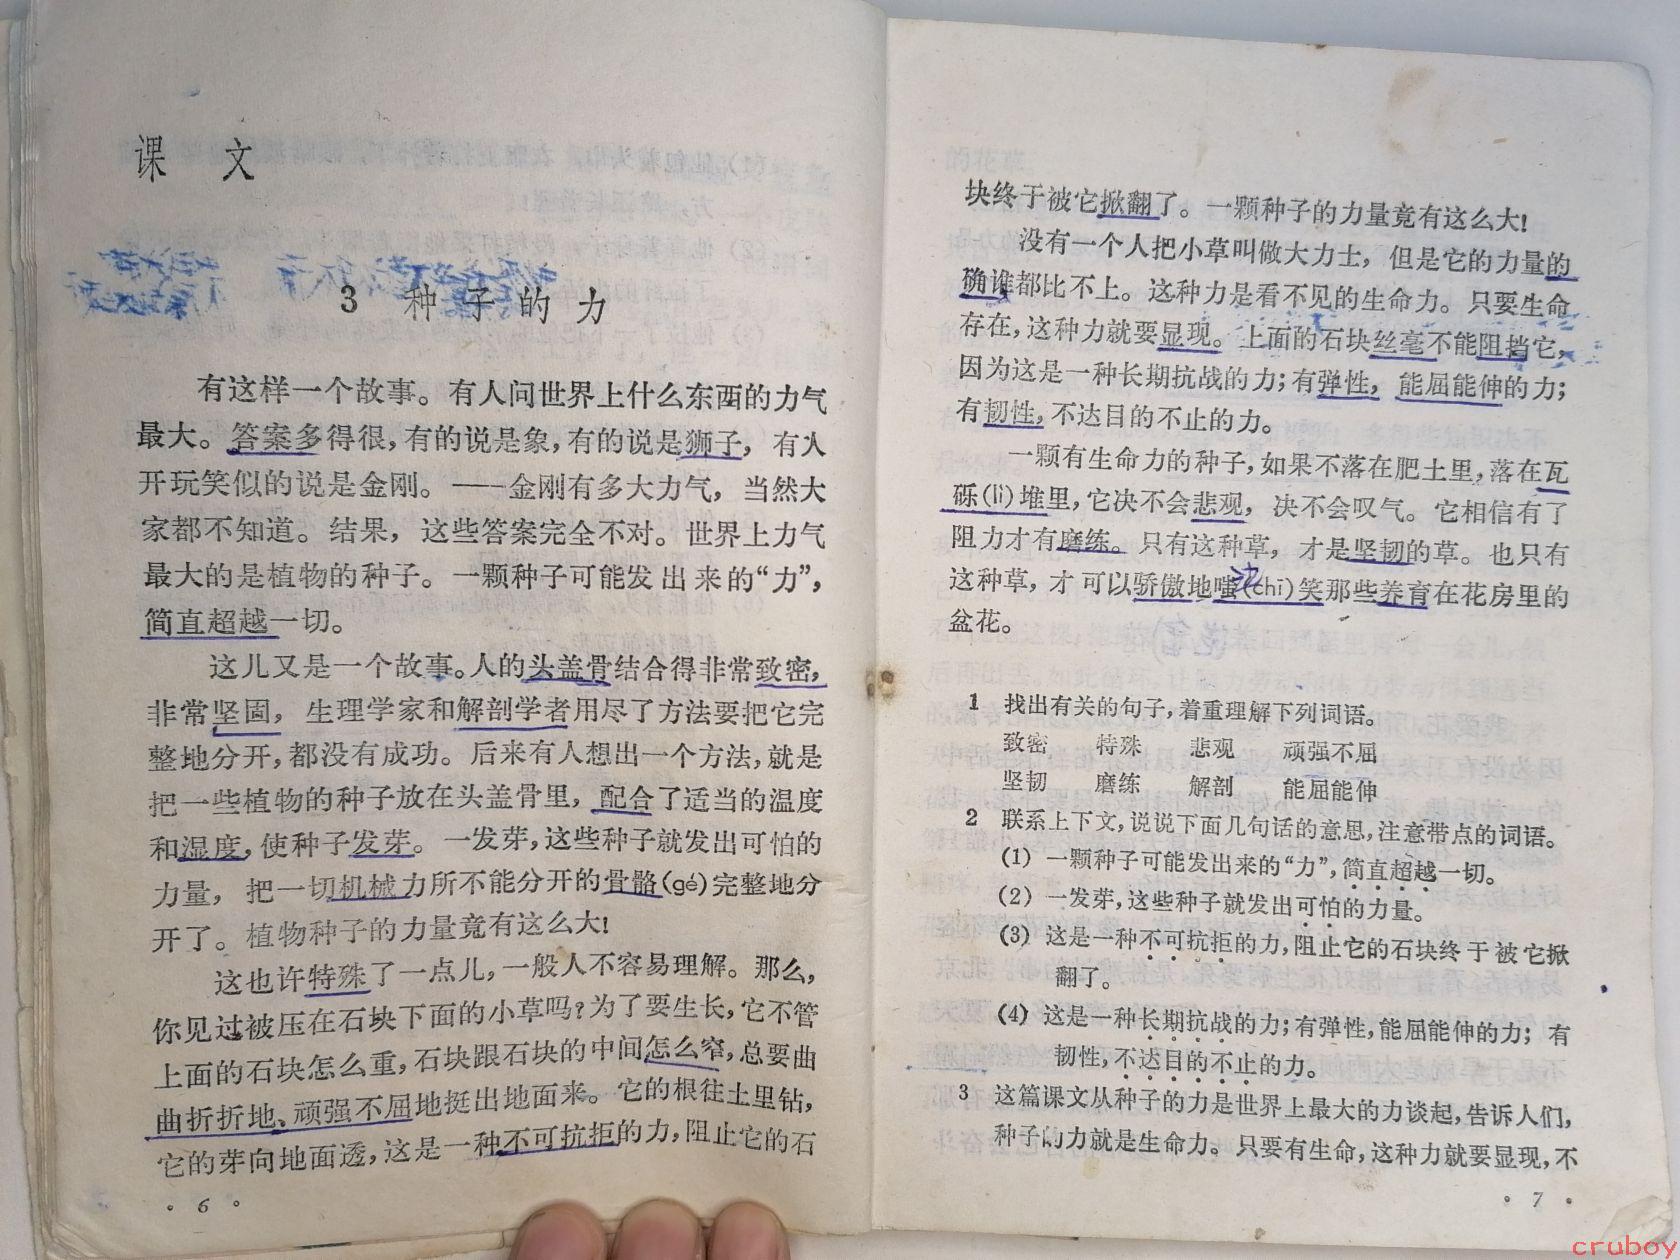 课 文
3 种子的力
有这样一个故事。有人问世界上什么东西的力气
最大。答案多得很，有的说是象，有的说是狮子，有人
开玩笑似的说是金刚。——金刚有多大力气，当然大
家都不知道。结果，这些答案完全不对。世界上力气
最大的是植物的种子。一颗种子可能发出来的“力”，
简直超越一切。
这儿又是一个故事。人的头盖骨结合得非常致密，
非常坚固，生理学家和解剖学者用尽了方法要把它完
整地分开，都没有成功。后来有人想出一个方法，就是
把一些植物的种子放在头盖骨里，配合了适当的温度
和湿度，使种子发芽。一发芽，这些种子就发出可怕的
力量，把一切机械力所不能分开的骨骼(gé)完整地分
开了。植物种子的力量竟有这么大!
这也许特殊了一点儿，一般人不容易理解。那么，
你见过被压在石块下面的小草吗?为了要生长，它不管
上面的石块怎么重，石块跟石块的中间怎么窄，总要曲
曲折折地、顽强不屈地挺出地面来。它的根往土里钻，
它的芽向地面透，这是一种不可抗拒的力，阻止它的石
· 6 ·
块终于被它掀翻了。一颗种子的力量竟有这么大!
没有一个人把小草叫做大力士，但是它的力量的
确谁都比不上。这种力是看不见的生命力。只要生命
存在，这种力就要显现。上面的石块丝毫不能阻挡它，
因为这是一种长期抗战的力；有弹性，能屈能伸的力；
有韧性，不达目的不止的力。
一颗有生命力的种子，如果不落在肥土里，落在瓦
砾(lì)堆里，它决不会悲观，决不会叹气。它相信有了
阻力才有磨练。只有这种草，才是坚韧的草。也只有
这种草，才可以骄傲地嗤(chī)笑那些养育在花房里的
盆花。
1 找出有关的句子，着重理解下列词语。
致密 特殊 悲观 顽强不屈
坚韧 磨练 解剖 能屈能伸
2 联系上下文，说说下面几句话的意思，注意带点的词语。
(1) 一颗种子可能发出来的“力”，简直超越一切。
(2) 一发芽，这些种子就发出可怕的力量。
(3) 这是一种不可抗拒的力，阻止它的石块终于被它掀
翻了。
(4) 这是一种长期抗战的力；有弹性，能屈能伸的力；有
韧性，不达目的不止的力。
3 这篇课文从种子的力是世界上最大的力谈起，告诉人们，
种子的力就是生命力。只要有生命，这种力就要显现，不
· 7 ·
cruboy